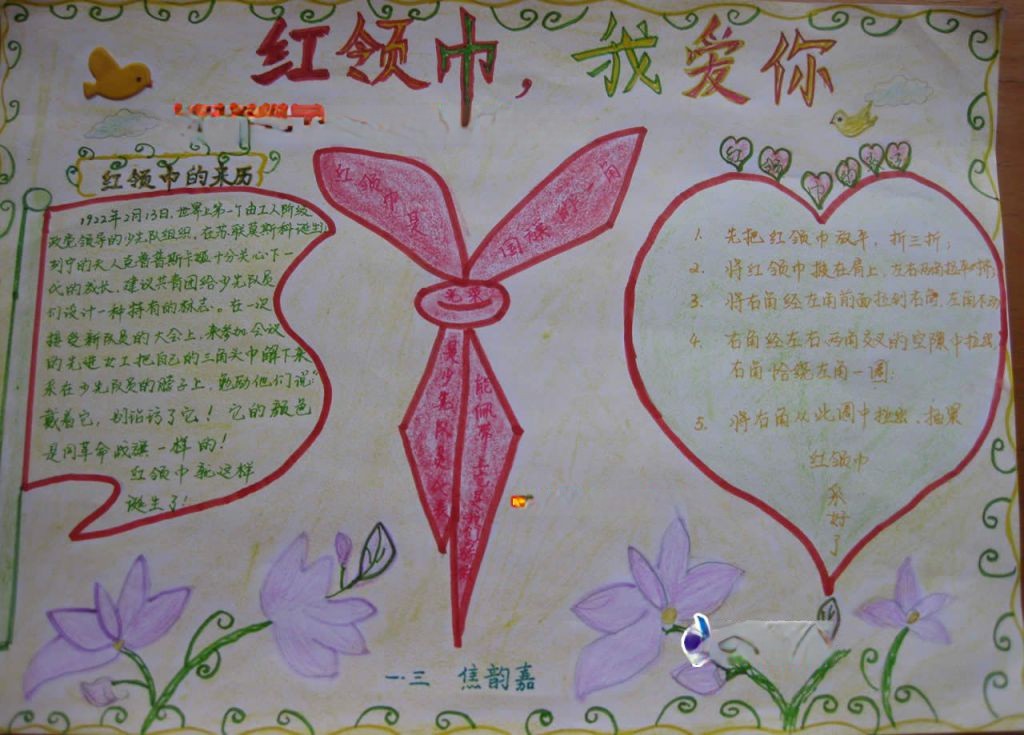 红领巾,我爱你
红领巾的来历
1922年2月13日,世界上第一个由工人阶级
政党领导的少先队组织,在苏联莫斯科诞生
列宁的夫人克鲁普斯卡娅十分关心下一
代的成长,建议共青团给少先队员
们设计一种特有的标志。在一次
接受新队员的大会上,来参加会议
的先进女工把自己的三角头巾解下来
系在少先队员的脖子上,勉励他们说:“
戴着它,别沾污了它!它的颜色
是同革命战旗一样的!
红领巾就这样
诞生了!
红领巾是
国旗的一角
是少先队员代表
能佩带上
红领巾
1. 先把红领巾放平,折三折;
2. 将红领巾披在肩上,左右两角拉平
3. 将右角经左角前面拉到右
4. 右角经左右两角交叉的空隙中拉
右角恰绕左角一圈;
5. 将右角从此圈中拉出,抽紧
红领巾
系
好
了
一.三 焦韵嘉